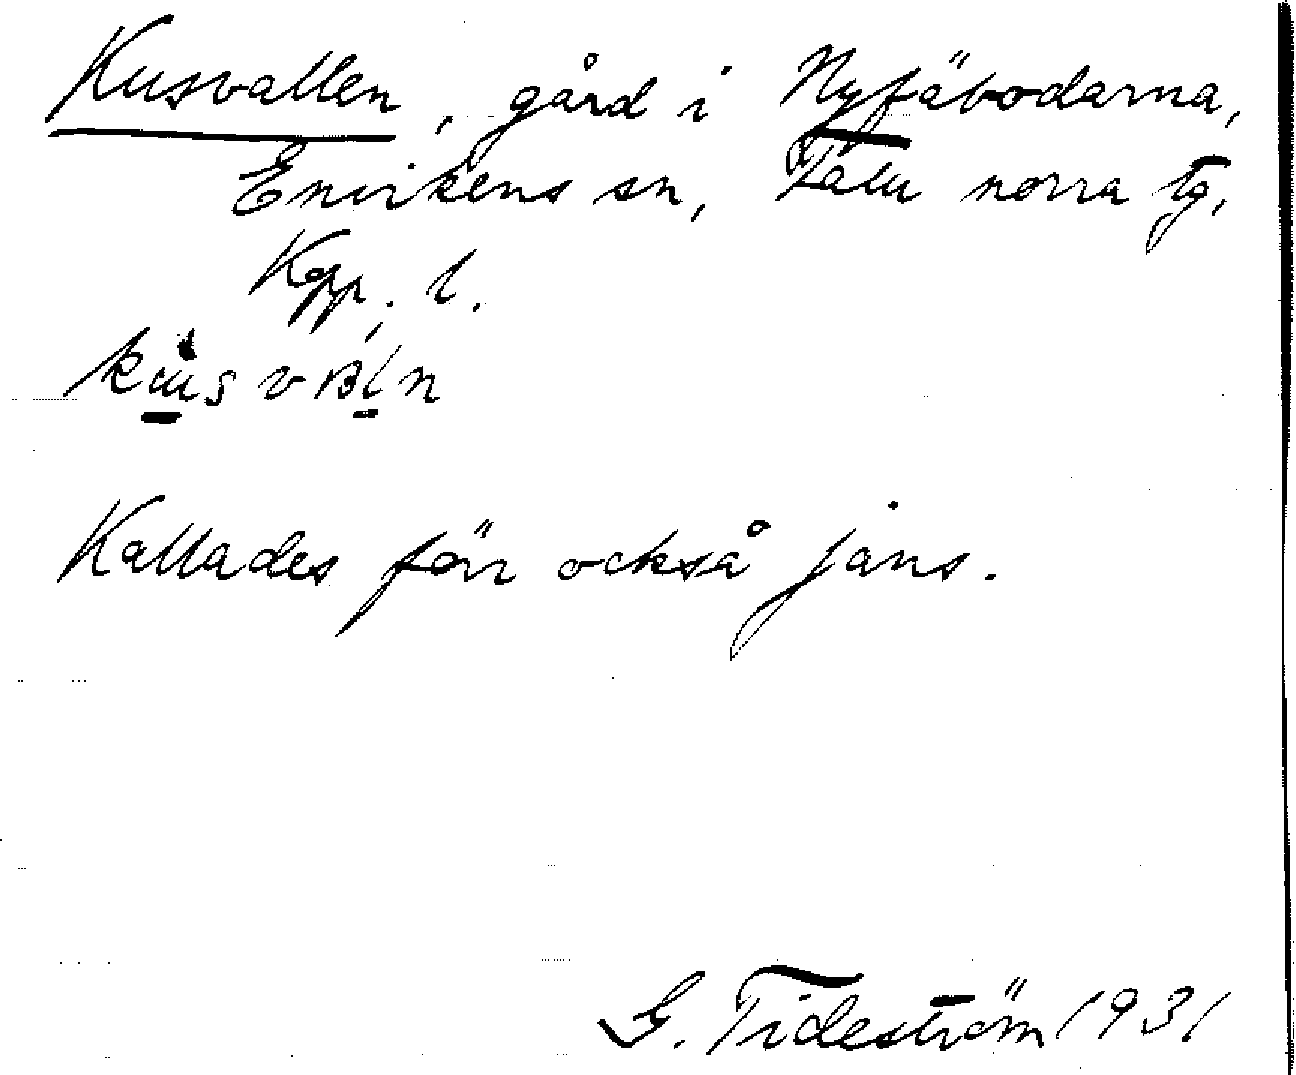 Kusvallen, gård i Nyfäbodarna,
Envikens sn, Falu norra tg,
Kpp. l.
Kallades förr också jans.
G. Tideström 1931